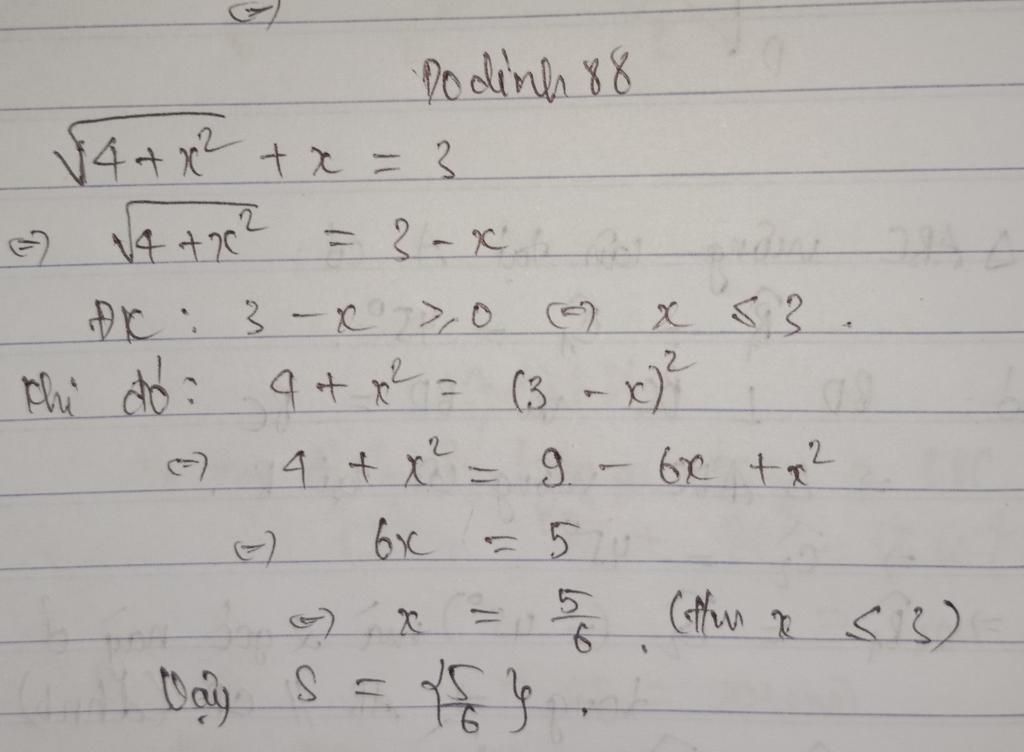 ⇔
Dodinh 88
√(4 + x²) + x = 3
⇔ √(4 + x²) = 3 - x
ĐK : 3 - x ≥ 0 ⇔ x ≤ 3 .
Khi đó : 4 + x² = (3 - x)²
⇔ 4 + x² = 9 - 6x + x²
⇔ 6x = 5
⇔ x = 5/6 . (thm x ≤ 3)
Vậy S = {5/6} .